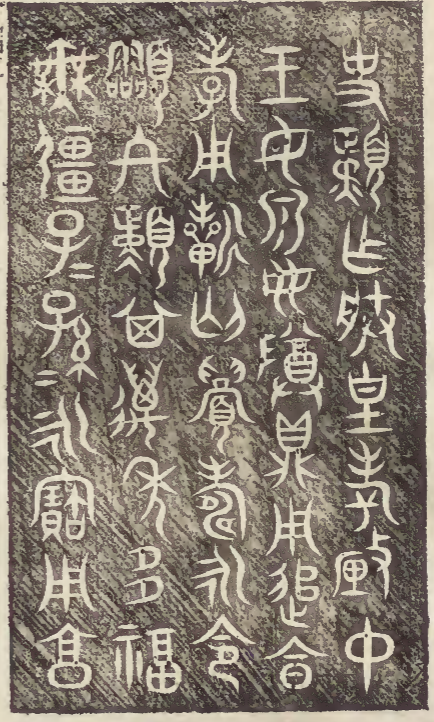 史顈乍朕皇考釐中
王母泉母尊鼎用追亯
孝用祈匄眉壽永令
冬顈其萬年多福
無彊子=孫=永寶用亯